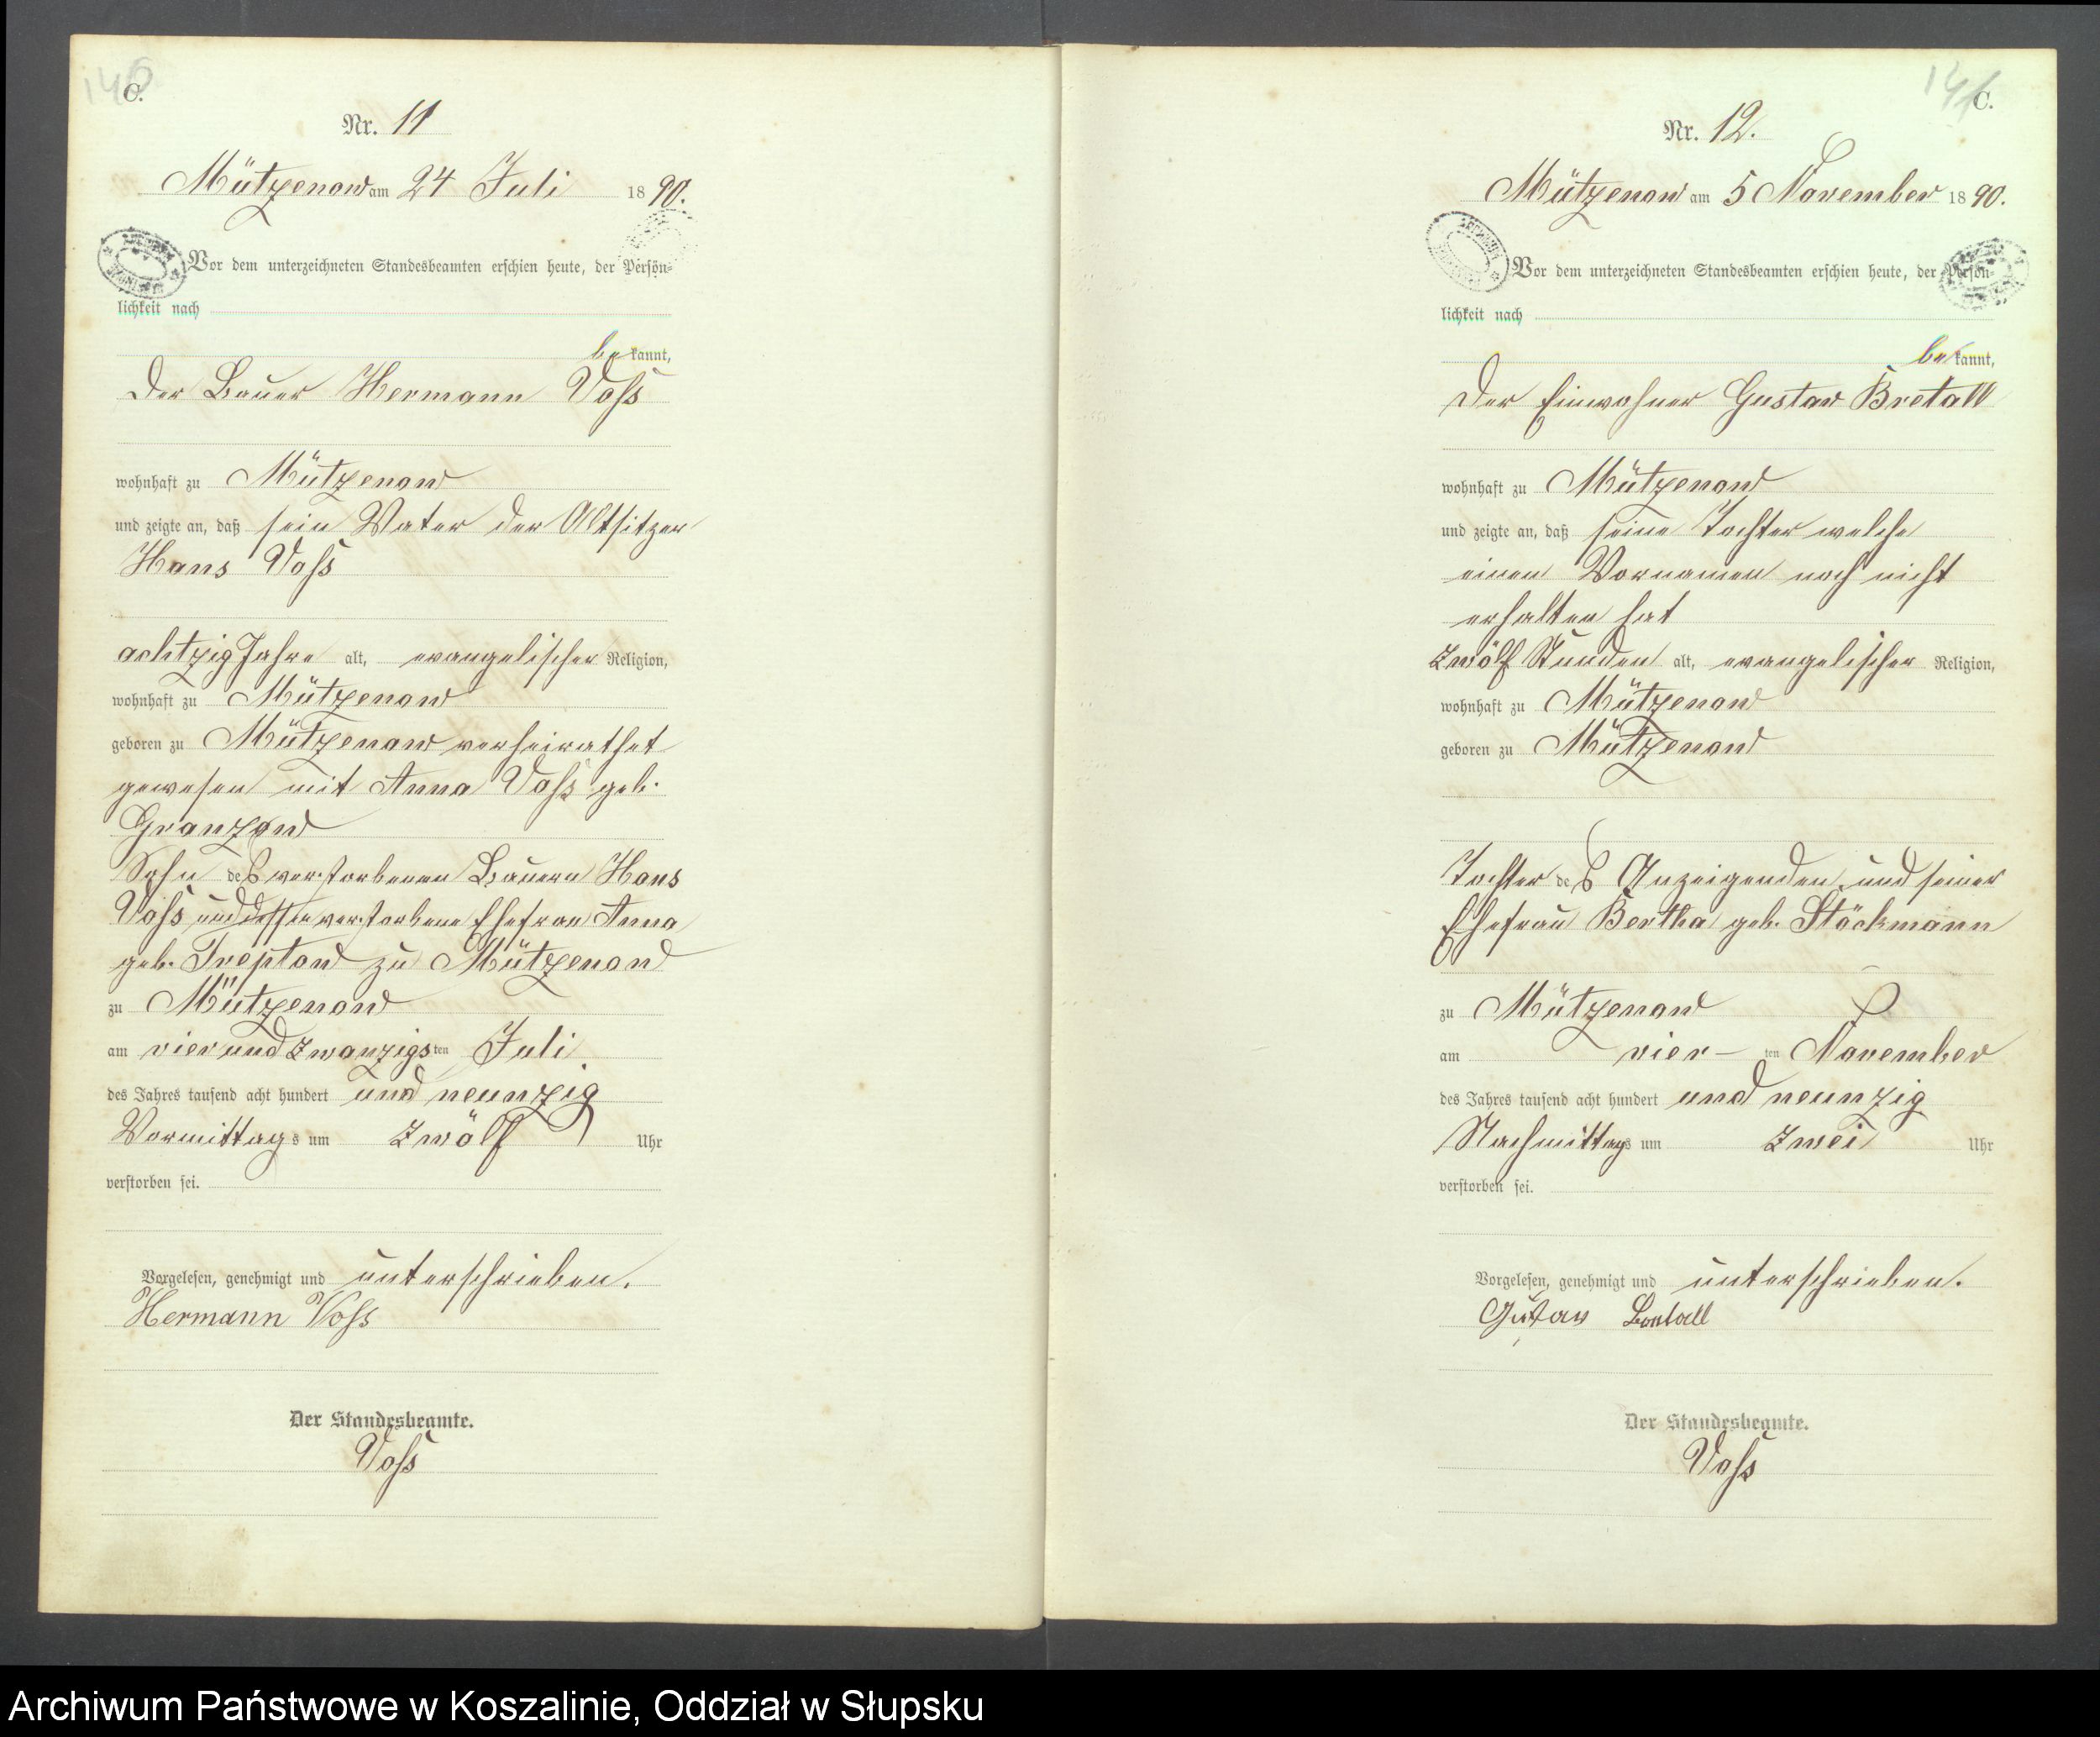 C.
Nr. 11
Mützenow am 24 Juli 1890.
Vor dem unterzeichneten Standesbeamten erschien heute, der Persön-
lichkeit nach
bekannt,
der Bauer Hermann Voß
wohnhaft zu Mützenow
und zeigte an, daß sein Vater der Altsitzer
Hans Voß
achtzig Jahre alt, evangelischer Religion,
wohnhaft zu Mützenow
geboren zu Mützenow verheirathet
gewesen mit Anna Voß geb.
Granzow
Sohn des verstorbenen Bauern Hans
Voß und dessen verstorbene Ehefrau Anna
geb. Treptow zu Mützenow
zu Mützenow
am vier und zwanzigsten Juli
des Jahres tausend acht hundert und neunzig
Vormittags um zwölf Uhr
verstorben sei.
Vorgelesen, genehmigt und unterschrieben.
Hermann Voß
Der Standesbeamte.
Voß
C.
Nr. 12.
Mützenow am 5 November 1890.
Vor dem unterzeichneten Standesbeamten erschien heute, der Persön-
lichkeit nach
bekannt,
der Einwohner Gustav Bretall
wohnhaft zu Mützenow
und zeigte an, daß seine Tochter welche
einen Vornamen noch nicht
erhalten hat
zwölf Stunden alt, evangelischer Religion,
wohnhaft zu Mützenow
geboren zu Mützenow
Tochter des Anzeigenden und seiner
Ehefrau Bertha geb. Stöckmann
zu Mützenow
am vier-ten November
des Jahres tausend acht hundert und neunzig
Nachmittags um zwei Uhr
verstorben sei.
Vorgelesen, genehmigt und unterschrieben.
Gustav
Der Standesbeamte.
Voß
Archiwum Państwowe w Koszalinie, Oddział w Słupsku